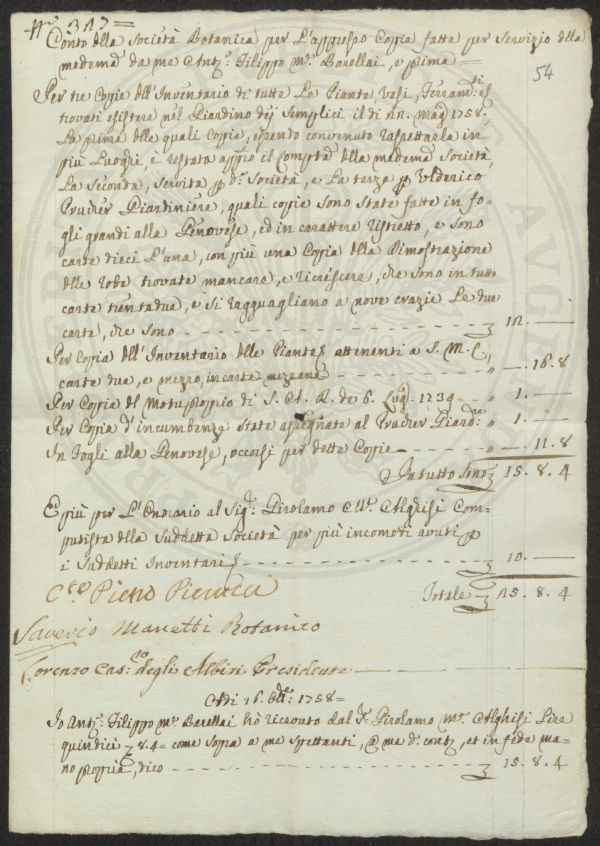 Conto della Società Botanica per L'appresso Copia fatta per servizio della
medema da me Ant.º Filippo M.ª Barellai, e prima =
54
Per tre Copie dell'Inventario di tutte Le Piante, Vasi, Ferram.ti
trovati esistere nel Giardino dei Semplici il dì Mag.º 1758.
La prima delle quali Copie, essendo convenuto rispettarla in
più Luoghi, è restata app.º il Comput.ª della medema Società,
La Seconda, servita p d.ª Società, e La terza p Ulderico
Prucker Giardiniere, quali copie sono State fatte in fo-
gli grandi alla Genovese, ed in carattere ristretto, e sono
carte dieci L'una, con più una Copia della Dimostrazione
delle robe trovate mancare, e ricrescere, che sono in tutto
carte trentadue, e si ragguagliano a nove crazie Le due
carte, che sono
Per Copia dell'Inventario delle Piante attenenti a S. M. C.,
carte due, e mezzo, in carta mezzana - " - . 16. 8
Per Copia del Motuproprio di S. A. R. de 6. Lug.º 1739 - " 1. —
Per Copia d'incumbenze State assegnate al Prucker Giard.re " 1. —
In Fogli alla Genovese, occorsi per dette Copie - " - . 11. 8
In tutto Sono 15. 8. 4
E più per L'Onorario al Sig.r Girolamo M.ª Alghisi Com-
putista della Suddetta Società per più incomodi avuti p
i Suddetti Inventari - 10. —
Totale - 25. 8. 4
Saverio Manetti Botanico
Lorenzo Cas.ro degli Albizi Presidente
Adi 16. 1758 =
Io Ant.º Filippo M.ª Barellai hò ricevuto dal S.r Girolamo M.ª Alghisi Lire
quindici 8. 4 = come sopra a me spettanti, me d.º conto, et in fede ma-
no propria, dico - 15. 8. 4